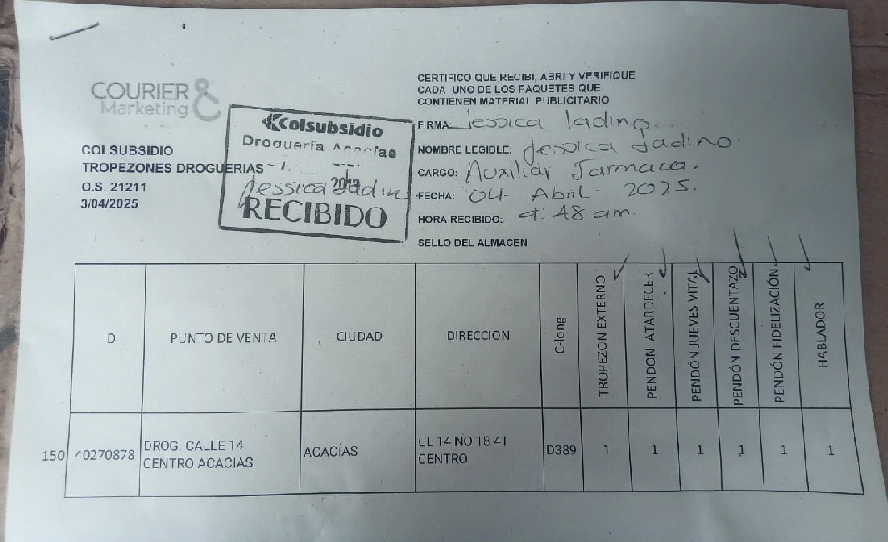 COURIER &
Marketing
COLSUBSIDIO
TROPEZONES DROGUERIAS
O.S. 21211
3/04/2025
Colsubsidio
Droguería Acacías
Jessica
RECIBIDO
CERTIFICO QUE RECIBI, ABRI Y VERIFIQUE
CADA UNO DE LOS PAQUETES QUE
CONTIENEN MATERIAL PUBLICITARIO
FIRMA: Jessica
NOMBRE LEGIBLE: Jessica
CARGO: Auxiliar Farmacia.
FECHA: 04 Abril 2025.
HORA RECIBIDO: 48 am.
SELLO DEL ALMACEN
D
PUNTO DE VENTA
CIUDAD
DIRECCION
C-long
TROPEZON EXTERNO
PENDON ATARDECER
PENDÓN JUEVES VITAL
PENDÓN DESCUENTAZO
PENDÓN FIDELIZACIÓN
HABLADOR
150 40270878 DROG. CALLE 14 CENTRO ACACIAS ACACÍAS CL 14 NO 18 41 CENTRO D389 1 1 1 1 1 1